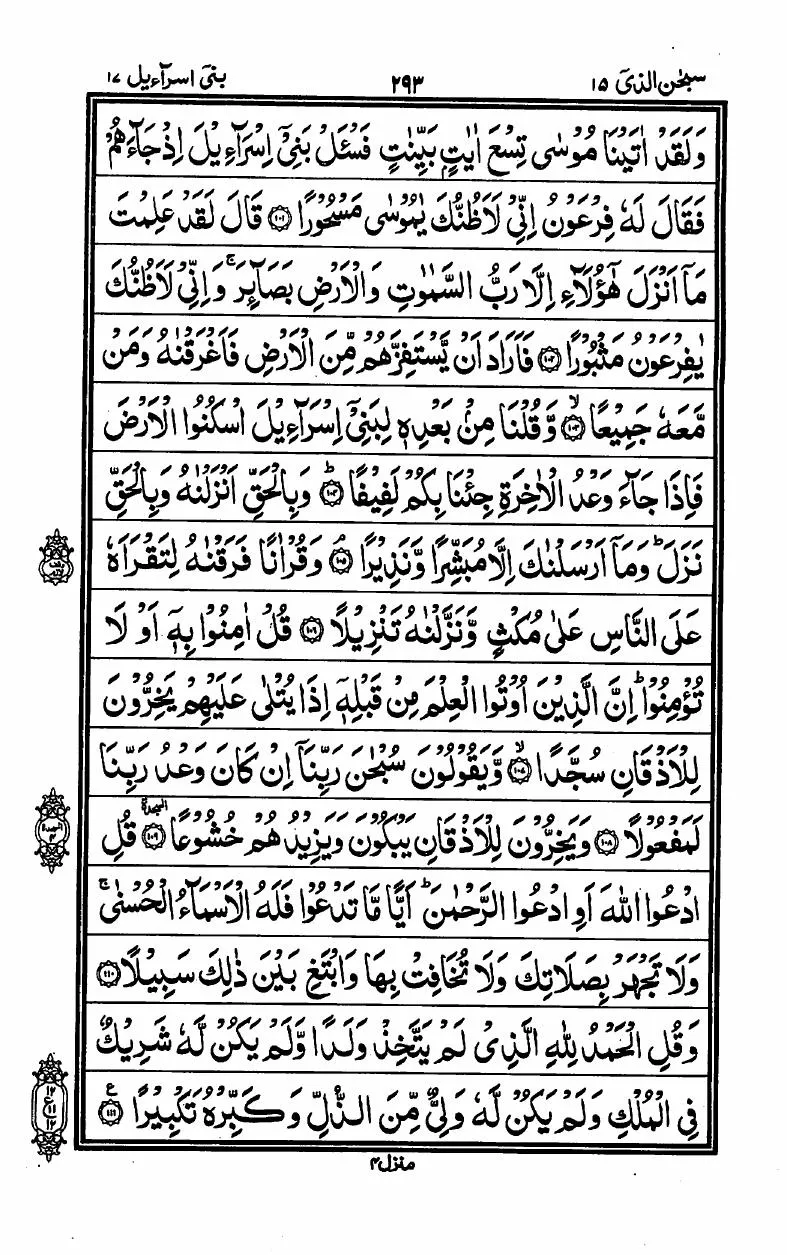 سبحٰن الذیٓ ۱۵ ۲۹۳ بنیٓ اسرآءیل ۱۷
وَلَقَدۡ اٰتَیۡنَا مُوۡسٰی تِسۡعَ اٰیٰتٍۭ بَیِّنٰتٍ فَسۡـَٔلۡ بَنِیۡۤ اِسۡرَآءِیۡلَ اِذۡ جَآءَهُمۡ
فَقَالَ لَهٗ فِرۡعَوۡنُ اِنِّیۡ لَاَظُنُّكَ یٰمُوۡسٰی مَسۡحُوۡرًا ﴿۱۰۱﴾ قَالَ لَقَدۡ عَلِمۡتَ
مَاۤ اَنۡزَلَ هٰۤؤُلَآءِ اِلَّا رَبُّ السَّمٰوٰتِ وَالۡاَرۡضِ بَصَآئِرَ ۚ وَاِنِّیۡ لَاَظُنُّكَ
یٰفِرۡعَوۡنُ مَثۡبُوۡرًا ﴿۱۰۲﴾ فَاَرَادَ اَنۡ یَّسۡتَفِزَّهُمۡ مِّنَ الۡاَرۡضِ فَاَغۡرَقۡنٰهُ وَمَنۡ
مَّعَهٗ جَمِیۡعًا ۙ﴿۱۰۳﴾ وَّقُلۡنَا مِنۡۢ بَعۡدِهٖ لِبَنِیۡۤ اِسۡرَآءِیۡلَ اسۡكُنُوا الۡاَرۡضَ
فَاِذَا جَآءَ وَعۡدُ الۡاٰخِرَةِ جِئۡنَا بِكُمۡ لَفِیۡفًا ؕ﴿۱۰۴﴾ وَبِالۡحَقِّ اَنۡزَلۡنٰهُ وَبِالۡحَقِّ
نَزَلَ ؕ وَمَاۤ اَرۡسَلۡنٰكَ اِلَّا مُبَشِّرًا وَّنَذِیۡرًا ﴿۱۰۵﴾ وَقُرۡاٰنًا فَرَقۡنٰهُ لِتَقۡرَاَهٗ
عَلَی النَّاسِ عَلٰی مُكۡثٍ وَّنَزَّلۡنٰهُ تَنۡزِیۡلًا ﴿۱۰۶﴾ قُلۡ اٰمِنُوۡا بِهٖۤ اَوۡ لَا
تُؤۡمِنُوۡا ؕ اِنَّ الَّذِیۡنَ اُوۡتُوا الۡعِلۡمَ مِنۡ قَبۡلِهٖۤ اِذَا یُتۡلٰی عَلَیۡهِمۡ یَخِرُّوۡنَ
لِلۡاَذۡقَانِ سُجَّدًا ۙ﴿۱۰۷﴾ وَّیَقُوۡلُوۡنَ سُبۡحٰنَ رَبِّنَاۤ اِنۡ كَانَ وَعۡدُ رَبِّنَا
لَمَفۡعُوۡلًا ﴿۱۰۸﴾ وَیَخِرُّوۡنَ لِلۡاَذۡقَانِ یَبۡكُوۡنَ وَیَزِیۡدُهُمۡ خُشُوۡعًا السجدة ﴿۱۰۹﴾ قُلِ
السجدة ۴
ادۡعُوا اللّٰهَ اَوِ ادۡعُوا الرَّحۡمٰنَ ؕ اَیًّا مَّا تَدۡعُوۡا فَلَهُ الۡاَسۡمَآءُ الۡحُسۡنٰی ۚ
وَلَا تَجۡهَرۡ بِصَلَاتِكَ وَلَا تُخَافِتۡ بِهَا وَابۡتَغِ بَیۡنَ ذٰلِكَ سَبِیۡلًا ﴿۱۱۰﴾
وَقُلِ الۡحَمۡدُ لِلّٰهِ الَّذِیۡ لَمۡ یَتَّخِذۡ وَلَدًا وَّلَمۡ یَكُنۡ لَّهٗ شَرِیۡكٌ
فِی الۡمُلۡكِ وَلَمۡ یَكُنۡ لَّهٗ وَلِیٌّ مِّنَ الذُّلِّ وَكَبِّرۡهُ تَكۡبِیۡرًا ﴿۱۱۱﴾ ع
۱۲
ع ۱۱
۱۲
منزل۴